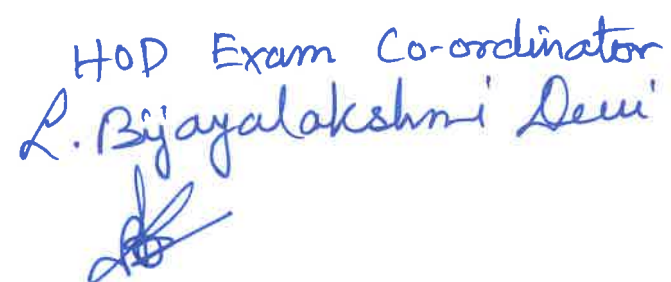 HOD Exam Co-ordinator
L. Bijayalakshmi Devi